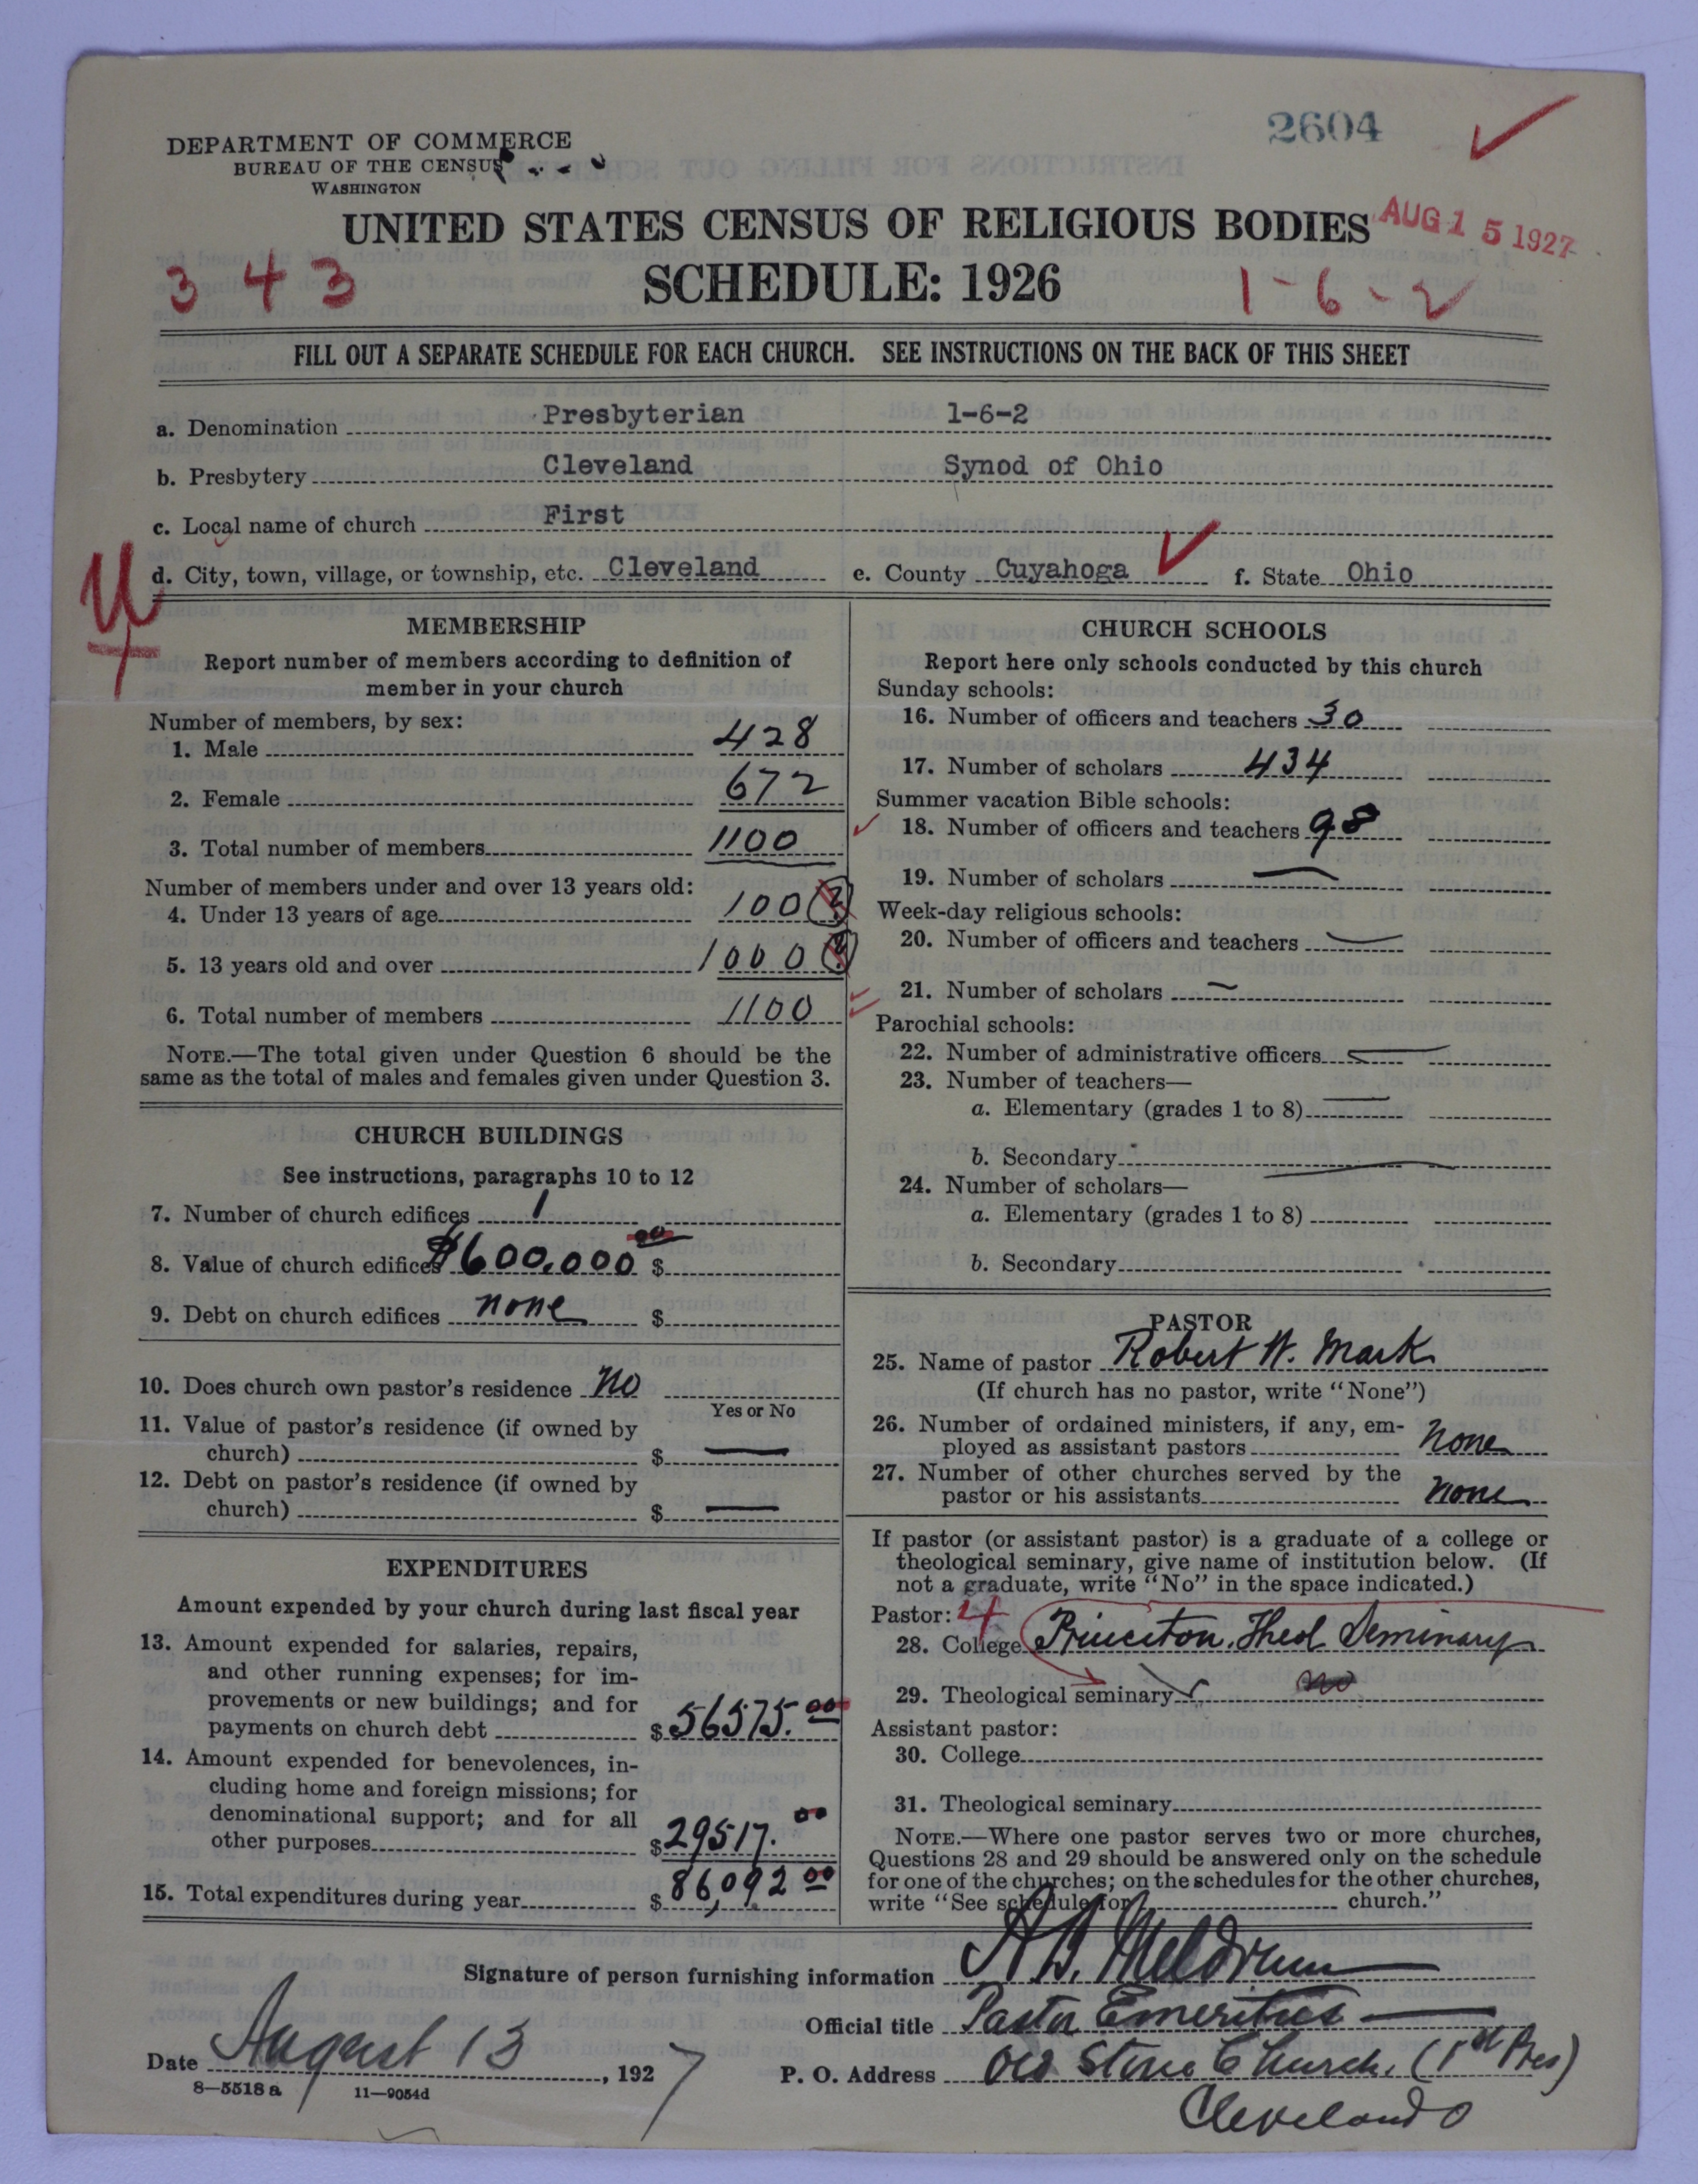 2604
DEPARTMENT OF COMMERCE
BUREAU OF THE CENSUS
WASHINGTON
UNITED STATES CENSUS OF RELIGIOUS BODIES
AUG 15 1927
3 4 3
SCHEDULE: 1926
1-6-2
FILL OUT A SEPARATE SCHEDULE FOR EACH CHURCH. SEE INSTRUCTIONS ON THE BACK OF THIS SHEET
a. Denomination Presbyterian 1-6-2
b. Presbytery Cleveland Synod of Ohio
c. Local name of church First
d. City, town, village, or township, etc. Cleveland e. County Cuyahoga f. State Ohio
MEMBERSHIP
Report number of members according to definition of
member in your church
Number of members, by sex:
1. Male 428
2. Female 672
3. Total number of members 1100
Number of members under and over 13 years old:
4. Under 13 years of age 100 (?)
5. 13 years old and over 1000 (?)
6. Total number of members 1100
NOTE.—The total given under Question 6 should be the
same as the total of males and females given under Question 3.
CHURCH BUILDINGS
See instructions, paragraphs 10 to 12
7. Number of church edifices 1
8. Value of church edifices $600,000 00 $
9. Debt on church edifices none $
10. Does church own pastor's residence no
Yes or No
11. Value of pastor's residence (if owned by
church) $ —
12. Debt on pastor's residence (if owned by
church) $ —
EXPENDITURES
Amount expended by your church during last fiscal year
13. Amount expended for salaries, repairs,
and other running expenses; for im-
provements or new buildings; and for
payments on church debt $ 56575.00
14. Amount expended for benevolences, in-
cluding home and foreign missions; for
denominational support; and for all
other purposes $ 29517.00
15. Total expenditures during year $ 86,092 00
CHURCH SCHOOLS
Report here only schools conducted by this church
Sunday schools:
16. Number of officers and teachers 30
17. Number of scholars 434
Summer vacation Bible schools:
18. Number of officers and teachers 98
19. Number of scholars —
Week-day religious schools:
20. Number of officers and teachers —
21. Number of scholars —
Parochial schools:
22. Number of administrative officers —
23. Number of teachers—
a. Elementary (grades 1 to 8) —
b. Secondary —
24. Number of scholars—
a. Elementary (grades 1 to 8)
b. Secondary
PASTOR
25. Name of pastor Robert W. Mark
(If church has no pastor, write "None")
26. Number of ordained ministers, if any, em-
ployed as assistant pastors None
27. Number of other churches served by the
pastor or his assistants none
If pastor (or assistant pastor) is a graduate of a college or
theological seminary, give name of institution below. (If
not a graduate, write "No" in the space indicated.)
Pastor: 4
28. College Princeton Theol Seminary
29. Theological seminary no
Assistant pastor:
30. College
31. Theological seminary
NOTE.—Where one pastor serves two or more churches,
Questions 28 and 29 should be answered only on the schedule
for one of the churches; on the schedules for the other churches,
write "See schedule for church."
Signature of person furnishing information A B. Meldrum
Official title Pastor Emeritus
Date August 13, 1927
P. O. Address Old Stone Church. (1st Pres)
Cleveland O
8—5518 a 11—9054d